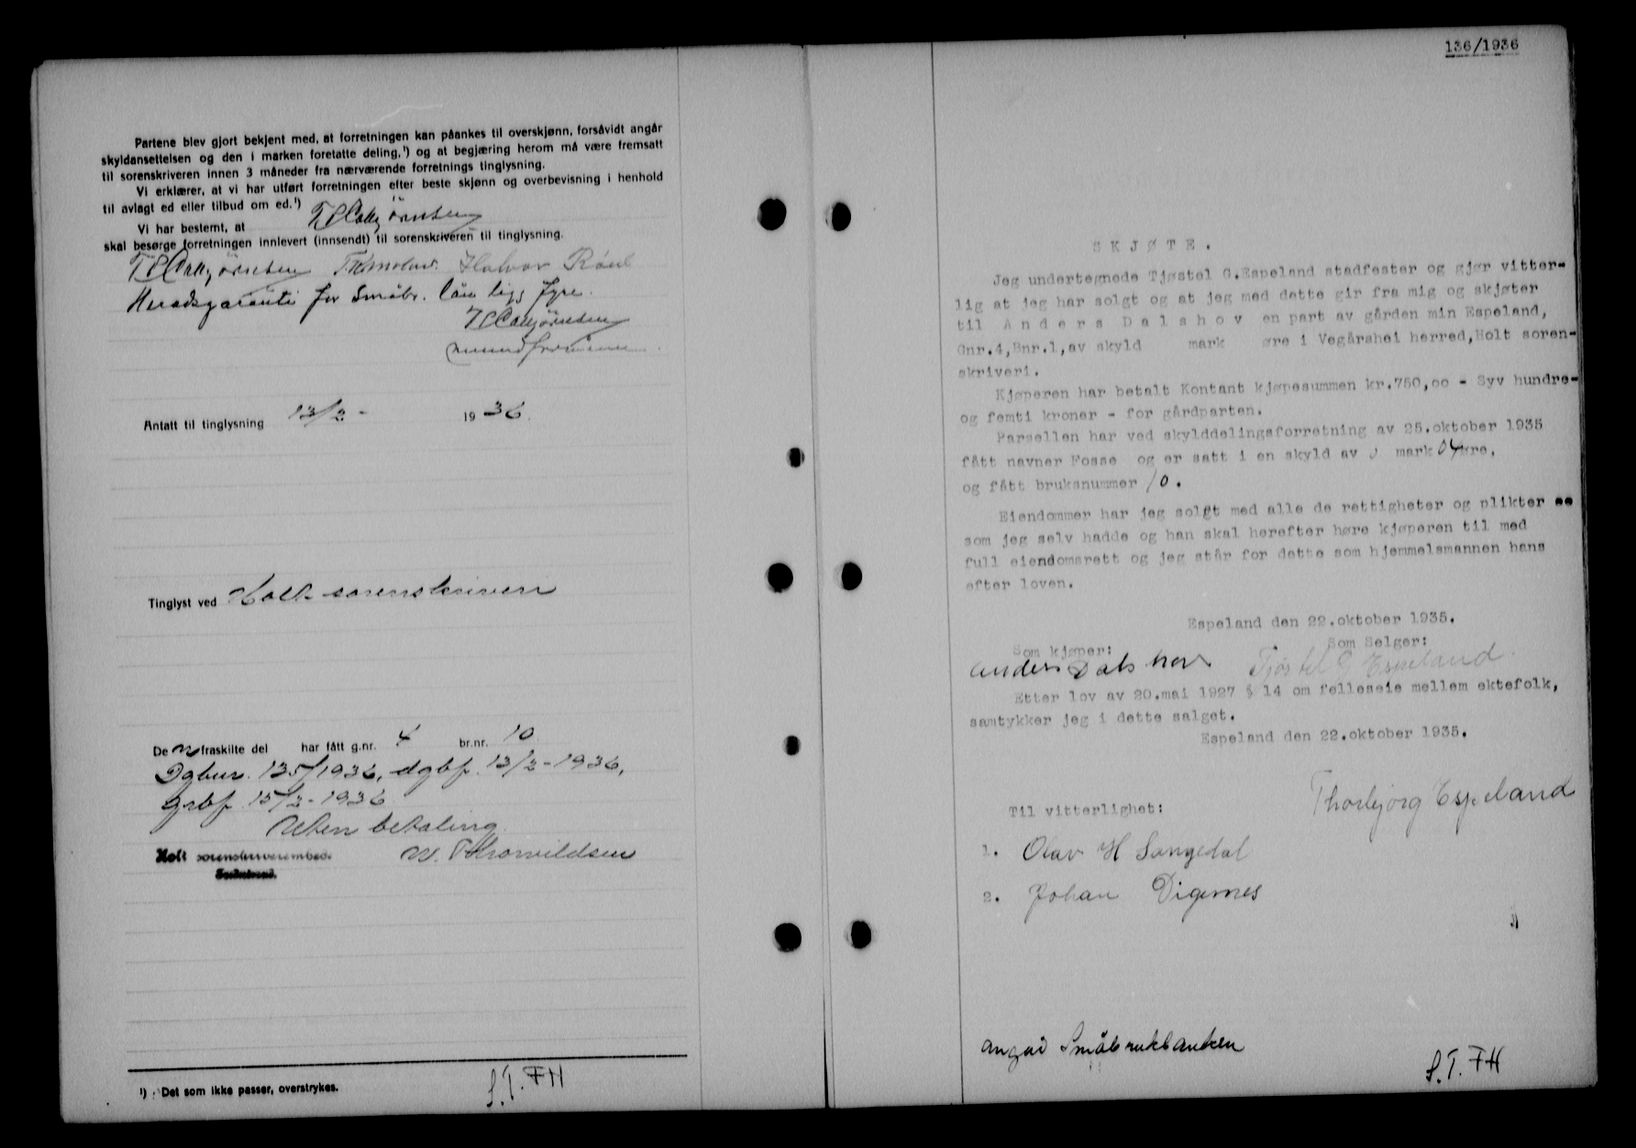 Partene blev gjort bekjent med, at forretningen kan påankes til overskjønn, forsåvidt angår
skyldansettelsen og den i marken foretatte deling,¹) og at begjæring herom må være fremsatt
til sorenskriveren innen 3 måneder fra nærværende forretnings tinglysning.
Vi erklærer, at vi har utført forretningen efter beste skjønn og overbevisning i henhold
til avlagt ed eller tilbud om ed.¹)
Vi har bestemt, at
skal besørge forretningen innlevert (innsendt) til sorenskriveren til tinglysning.
Halvor
Heradsgaranti for Småbr. lån ligg fyre.
Antatt til tinglysning 13/2 - 1936.
Tinglyst ved Holt sorenskriveri
De n fraskilte del har fått g.nr. 4 br.nr. 10
Dgbnr. 135/1936, dgbf. 13/2-1936,
grbf. 15/2-1936
Uten betaling
Holt sorenskriverembede
¹) Det som ikke passer, overstrykes.
S.T. FH
136/1936
SKJØTE.
Jeg undertegnede Tjøstel G.Espeland stadfester og gjør vitter-
lig at jeg har solgt og at jeg med dette gir fra mig og skjøter
til Anders Dalshov en part av gården min Espeland,
Gnr.4,Bnr.1,av skyld mark øre i Vegårshei herred,Holt soren-
skriveri.
Kjøperen har betalt Kontant kjøpesummen kr.750,oo - Syv hundre-
og femti kroner - for gårdparten.
Parsellen har ved skylddelingsforretning av 25.oktober 1935
fått navner Fosse og er satt i en skyld av 0 mark 04 øre,
og fått bruksnummer 10.
Eiendommer har jeg solgt med alle de rettigheter og plikter
som jeg selv hadde og han skal herefter høre kjøperen til med
full eiendomsrett og jeg står for dette som hjemmelsmannen hans
efter loven.
Espeland den 22.oktober 1935.
Som kjøper: Som Selger:
Anders Dalshov Tjøstel G Espeland.
Etter lov av 20.mai 1927 § 14 om felleseie mellem ektefolk,
samtykker jeg i dette salget.
Espeland den 22.oktober 1935.
Thorbjørg Espeland
Til vitterlighet:
1. Olav H Songedal
2. Johan Digernes
Angår Småbrukbanken
S.T. FH